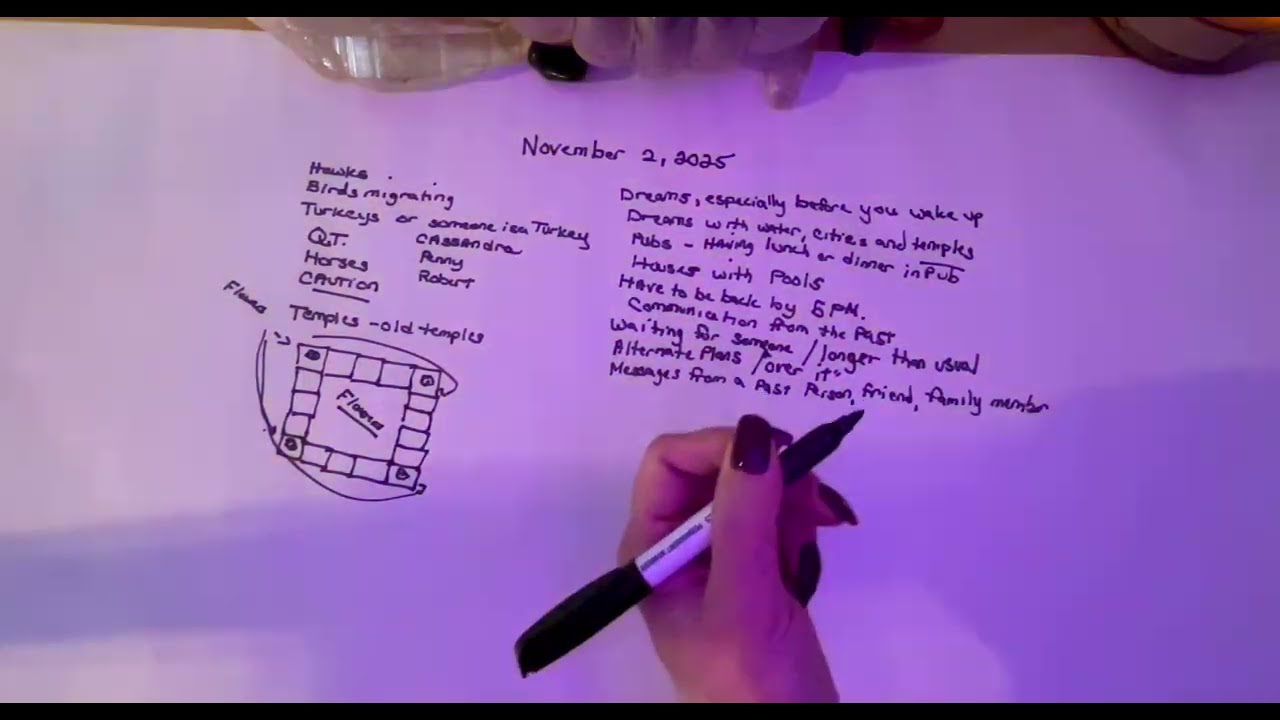 November 2, 2025
Hawks
Birds migrating
Turkeys or someone is a Turkey
Q.T. CAssandra
Horses Penny
CAUTION Robert
Temples - old temples
Flowers
Flowers
Dreams, especially before you wake up
Dreams with water, cities and temples
Pubs - Having lunch or dinner in Pub
Houses with Pools
Have to be back by 5 PM.
Communication from the Past
Waiting for someone / longer than usual
Alternate Plans / "over it"
Messages from a Past Person, friend, family member